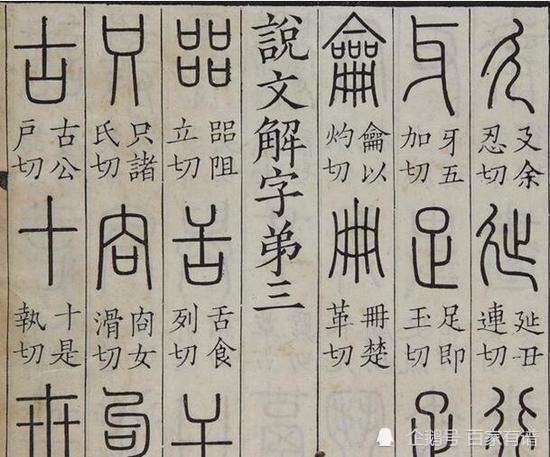 廴
廴余
忍切
㢟
㢟丑
連切
行
牙
牙五
加切
足
足即
玉切
疋
龠
龠以
灼切
冊
冊楚
革切
說文解字弟三
㗊
㗊阻
立切
舌
舌食
列切
干
只
只諸
氏切
㕯
㕯女
滑切
句
古
古公
戶切
十
十是
執切
卅
企鹅号 百家有谱